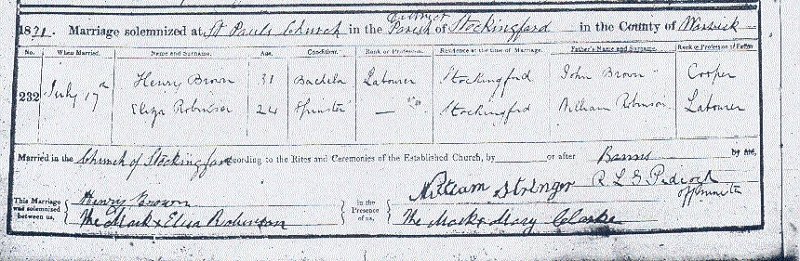 1871. Marriage solemnized at St Pauls Church in the District Parish of Stockingford in the County of Warwick
No. When Married. Name and Surname. Age. Condition. Rank or Profession. Residence at the time of Marriage. Father's Name and Surname. Rank or Profession of Father
232 July 17th Henry Brown 31 Bachelor Labourer Stockingford John Brown Cooper
Eliza Robinson 24 Spinster — Stockingford William Robinson Labourer
Married in the Church of Stockingford according to the Rites and Ceremonies of the Established Church, by or after Banns by me,
This Marriage was solemnized between us, Henry Brown In the Presence of us, William Stringer R L G Pidcock
The Mark x Eliza Robinson The Mark x Mary Clarke